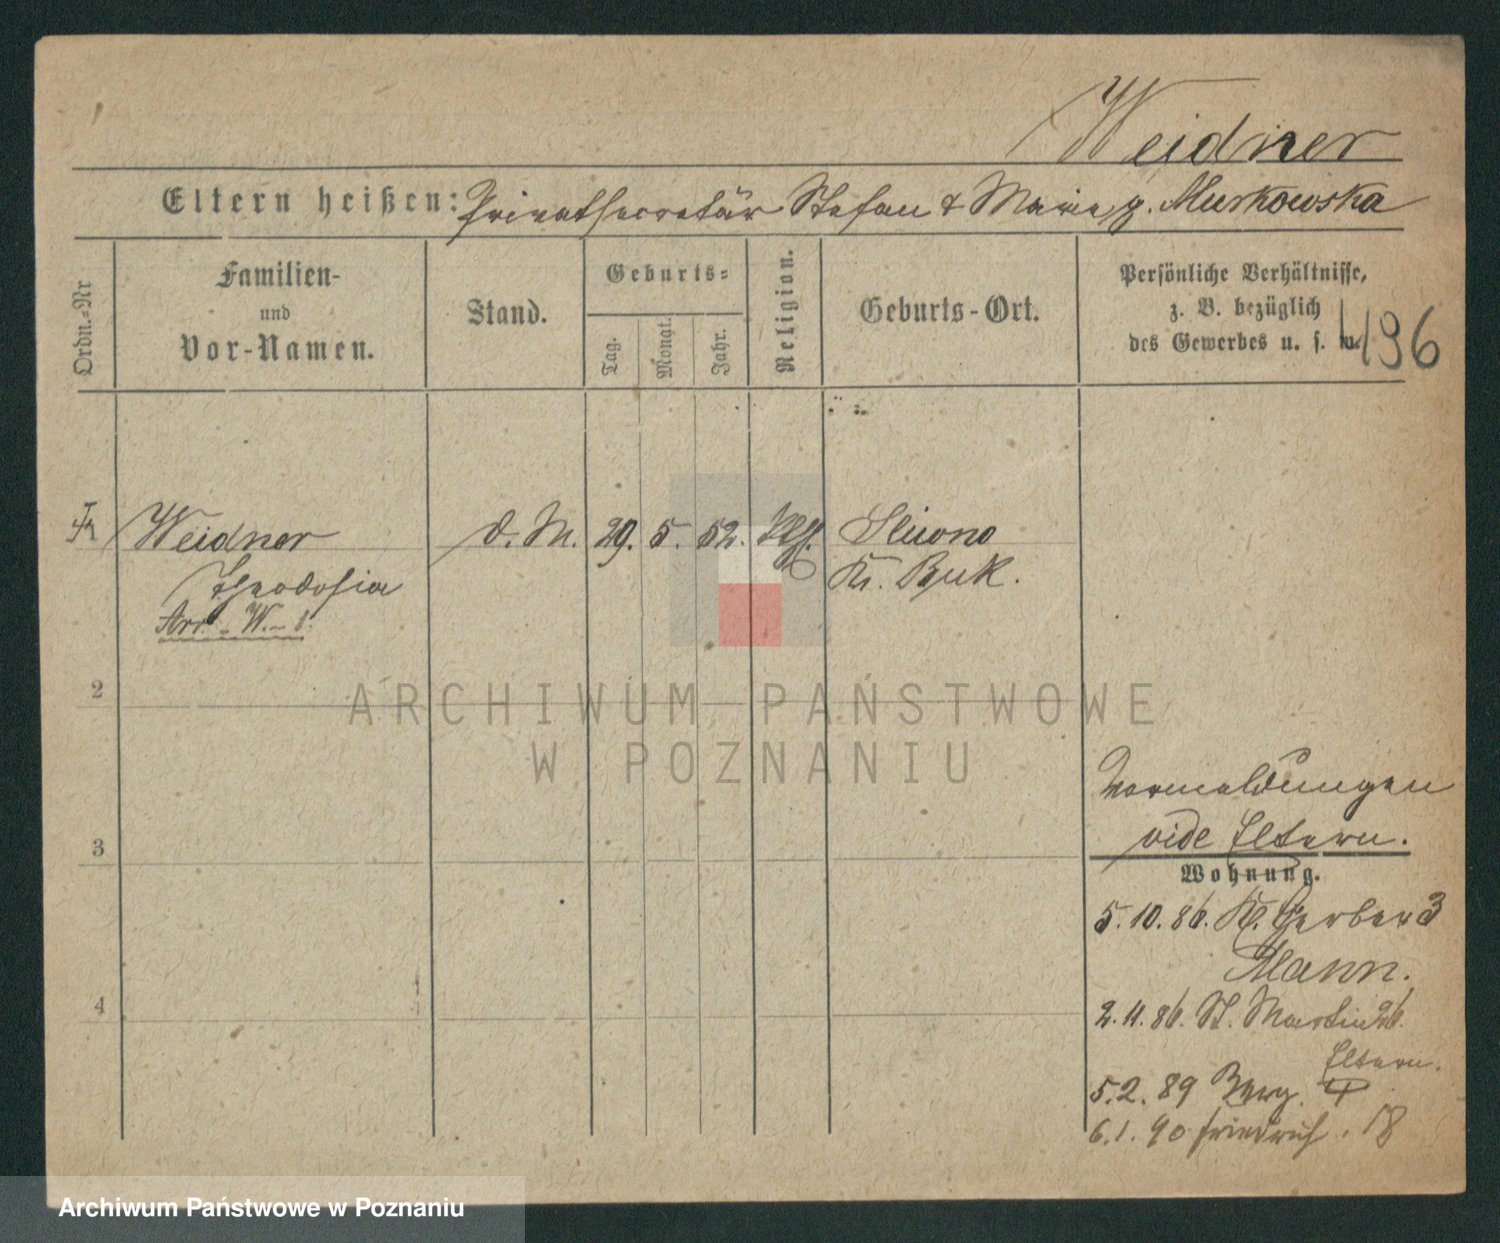 Weidner
Eltern heißen: Privatsecretär Stefan & Marie g. Murkowska
Ordn.-Nr
Familien-
und
Vor-Namen.
Stand.
Geburts-
Tag.
Monat.
Jahr.
Religion.
Geburts-Ort.
Persönliche Verhältnisse,
z. B. bezüglich
des Gewerbes u. s. w.
496
Weidner d. M. 29. 5. 52. Kth. Sliwno
Theodosia Kr. Buk.
W. 1.
2
3
4
Vormeldungen
vide Eltern.
Wohnung.
5.10.86. Kl. Gerber 3
Mann.
2.11.86. St. Martin 26.
Eltern.
5.2.89 Berg.
6.1.90 Friedrich. 18
ARCHIWUM PAŃSTWOWE
W POZNANIU
Archiwum Państwowe w Poznaniu